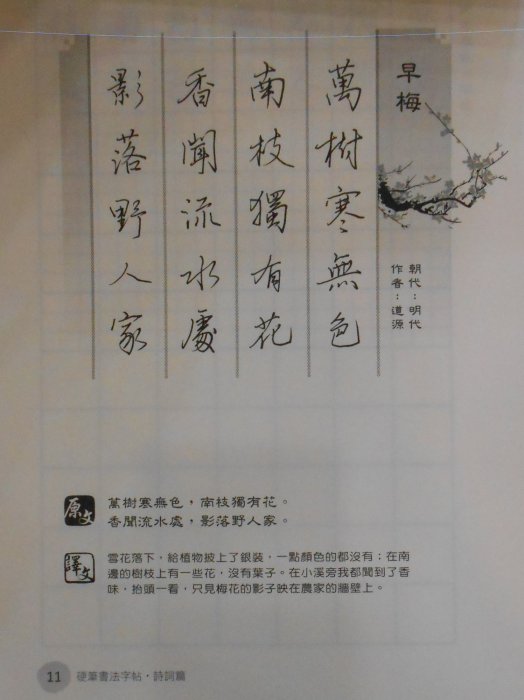 早梅
朝代：明代
作者：道源
萬樹寒無色
南枝獨有花
香聞流水處
影落野人家
原文
萬樹寒無色，南枝獨有花。
香聞流水處，影落野人家。
譯文
雪花落下，給植物披上了銀裝，一點顏色的都沒有；在南
邊的樹枝上有一些花，沒有葉子。在小溪旁我都聞到了香
味，抬頭一看，只見梅花的影子映在農家的牆壁上。
11 硬筆書法字帖・詩詞篇